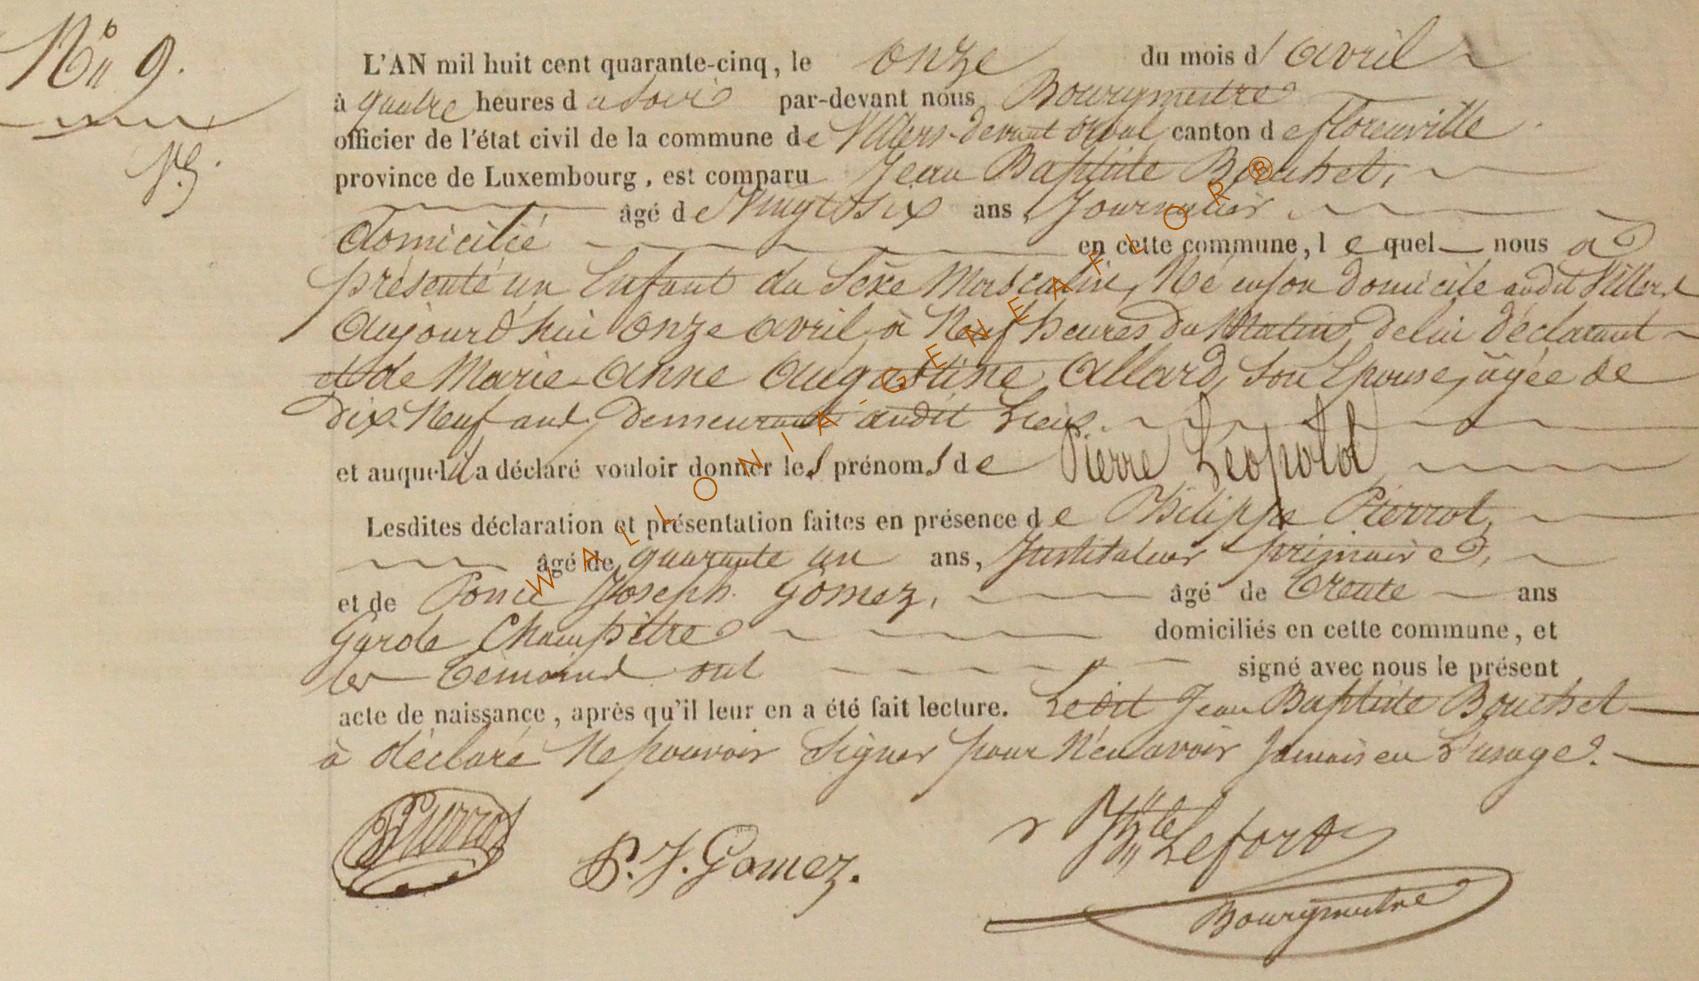 N° 9.
L'AN mil huit cent quarante-cinq, le onze du mois d'avril
à quatre heures du soir par-devant nous Bourgmestre
officier de l'état civil de la commune de Villers-devant orval canton de florenville
province de Luxembourg, est comparu Jean Baptiste Bouchet,
âgé de Vingt Six ans, Journalier
domicilié en cette commune, lequel nous a
présenté un Enfant du Sexe Masculin, Né en son domicile audit Villers
aujourd'hui onze avril, à Neuf heures du Matin, de lui déclarant
et de Marie-Anne Augustine Allard, Son Epouse, âgée de
dix-Neuf ans, demeurant audit Lieu.
et auquel il a déclaré vouloir donner les prénoms de Pierre Léopold
Lesdites déclaration et présentation faites en présence de Philippe Pierrot,
âgé de quarante un ans, Instituteur primaire,
et de Ponce Joseph Gomez, âgé de trente ans
Garde Champêtre domiciliés en cette commune, et
les témoins ont signé avec nous le présent
acte de naissance, après qu'il leur en a été fait lecture. Ledit Jean Baptiste Bouchet
à déclaré Ne pouvoir Signer pour N'en avoir Jamais eu L'usage.
Pierrot P. J. Gomez. Lefort
Bourgmestre
WALLONIA-GENEAFLOR®